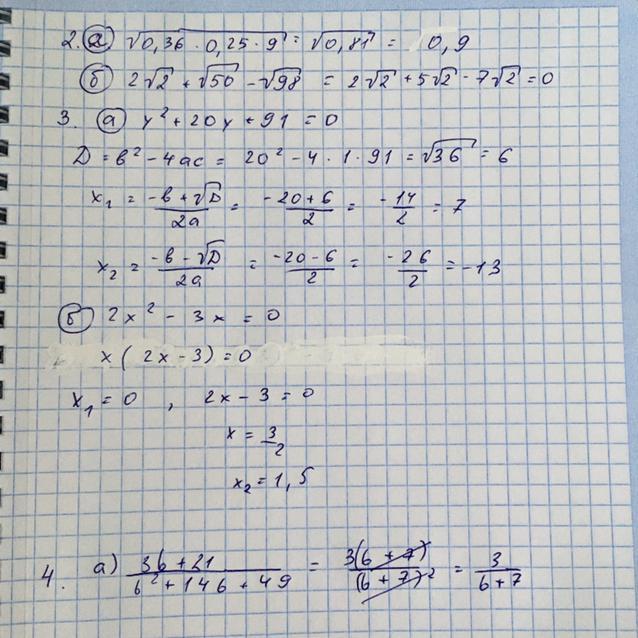 2. а) √0,36 · 0,25 · 9 = √0,81 = 0,9
б) 2√2 + √50 - √98 = 2√2 + 5√2 - 7√2 = 0
3. а) y² + 20y + 91 = 0
D = b² - 4ac = 20² - 4 · 1 · 91 = √36 = 6
x₁ = (-b + √D)/(2a) = (-20 + 6)/2 = -14/2 = 7
x₂ = (-b - √D)/(2a) = (-20 - 6)/2 = -26/2 = -13
б) 2x² - 3x = 0
x(2x - 3) = 0
x₁ = 0, 2x - 3 = 0
x = 3/2
x₂ = 1,5
4. а) (3b + 21)/(b² + 14b + 49) = 3(b + 7)/(b + 7)² = 3/(b + 7)